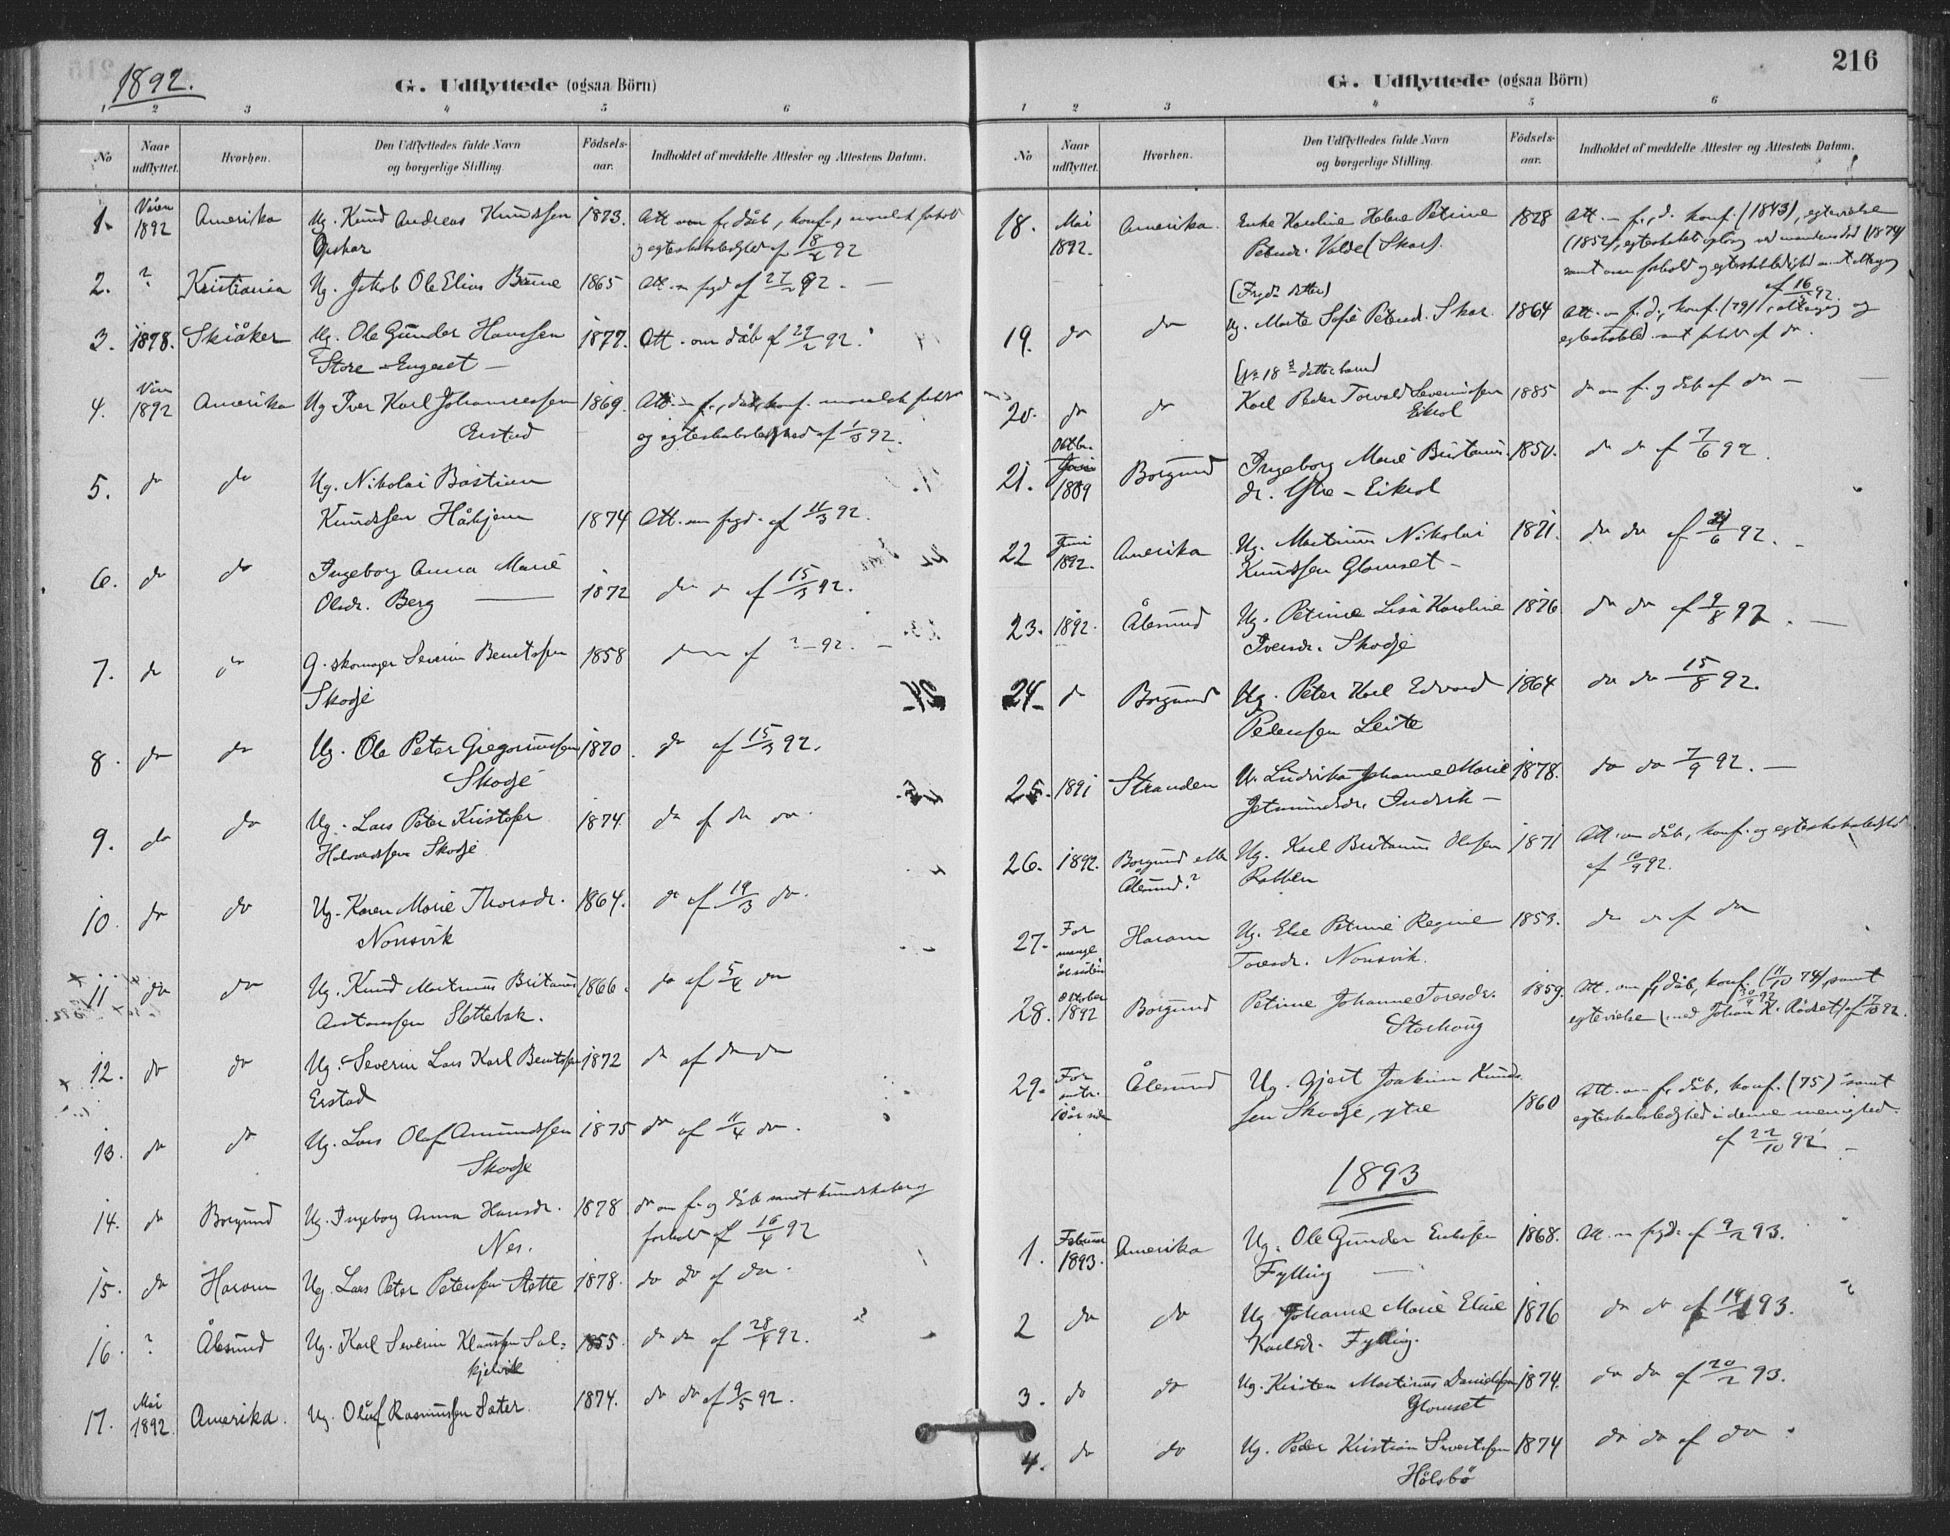 1892.
G. Udflyttede (ogsaa Börn)
1 2 3 4 5 6
No
Naar udflyttet.
Hvorhen.
Den Udflyttedes fulde Navn og borgerlige Stilling.
Födsels-aar.
Indholdet af meddelte Attester og Attestens Datum.
1. Våren 1892 Amerika Ug. Knud Andreas Knudssen 1873. Att. om f., dåb, konf., moralsk forhold
og egteskabsledighed af 92
2. ? Kristiania Ug. Jakob Ole Elias Brune 1865 Att. af 27/2 92. —
3. 1878. Skiåker Ug. Ole Gunder Hanssen 1877. Att. om dåb af 29/2 92.
Store-Engeset —
4. Vår 1892 Amerika Ug Iver Karl Johannessen 1869. Att. f., dåb, konf. moralsk forhold
Erstad og egteskabsledighed af 1/3 92.
5. do do Ug. Nikolai Bastian
Knudssen Håhjem 1874 Att. af 11/3 92.
6. do do Ingeborg Anna Marie
Olsdr. Berg — 1872 do af 15/3 92.
7. do do G. skomager Severin Berntssen 1858 af ? 92. —
Skodje
8. do do Ug. Ole Peter Gregoriussen 1870. do af 15/3 92.
Skodje
9. do do Ug. Lars Peter Kristofer 1874 do af do do.
Halvardssen Skodje
10. do do Ug. Karen Marie Thorsdr. 1864. do af 19/3 do.
Nonsvik
11 do do Ug. Knud Martinus Britanus 1866. do af 5/4 do
Antonssen Slettebak.
12. do do Ug. Severin Lars Karl Berntssen 1872 do af do do
Erstad
13. do do Ug. Lars Olaf Amundssen 1875 do af 11/4 do.
Skodje
14. do Borgund Ug. Ingeborg Anna Hansdr. 1878 do om f. og dåb samt kundskaber og
Nes. forhold af 16/4 92
15. do Haram Ug. Lars Peter Peterssen Slette 1878. do do af do.
16. ? Ålesund Ug. Karl Severin Klaussen Sol- 1855. do do af 28/4 92.
kjelvik
17. Mai 1892. Amerika. Ug. Oluf Rasmussen Sæter. 1874. do do af 9/5 92.
216
G. Udflyttede (ogsaa Börn)
1 2 3 4 5 6
No
Naar udflyttet.
Hvorhen.
Den Udflyttedes fulde Navn og borgerlige Stilling.
Födsels-aar.
Indholdet af meddelte Attester og Attestens Datum.
18. Mai 1892. Amerika. Enke Karoline Helene Petrine 1828 Att. f., d. konf. (1843), egtevielse
Petersdr. Valde (Skar). (1852), egteskabets opløsn. ved mandens død (1874)
samt om forhold og egteskabsledighed
af 16/5 92.
19. do do Ug. Marte Sofie Petersd. Skar. 1864 Att. f. d., konf. (79), og
egteskabsled. samt forhold af do.
(No 18s datterbarn)
20. do do Karl Peder Torvald Severinssen 1885 do om f. og dåb af do —
Eikrol
21. Oktbr. 1889 Borgund Ingeborg Marie Britanus- 1850. do do af 7/6 92.
dr. Ytre-Eikrol
22 Juni 1892. Amerika Ug. Martinus Nikolai 1871. do do af 92.
Knudssen Glomset —
23. 1892. Ålesund Ug. Petrine Lisa Karoline 1876 do do af 9/8 92. —
Iversdr. Skodje
24. do Borgund Ug. Peter Karl Edvard 1864 do do 15/8 92.
Peterssen Leite
25. 1891 Stranden U. Ludvika Johanne Marie 1878. do do 7/9 92. —
Jetmundsdr. Indvik —
26. 1892. Borgund eller Ug. Karl Britanus Olssen 1871 Att. om dåb, konf. og egteskabsledighed
Ålesund? Rabben af 10/9 92.
27. For mange år siden Haram Ug. Else Petrine Regine 1853. do af do
Toresdr. Nonsvik.
28. Oktober 1892 Borgund Petrine Johanne Toresdr. 1859. Att. om f., dåb, konf. (11/10 74) samt
Storhaug egtevielse (med Johan K. Rødset) af 92.
29. For omtr. 10 år siden Ålesund Ug. Gjert Joakim Knuds- Att. om f., dåb, konf. (75) samt
sen Skodje, ytre 1860 egteskabsledighed i denne menighed.
af 22/10 92 —
1893
1. Februar 1893. Amerika Ug. Ole Gunder Erikssen 1868. Att. af 9/2 93.
Fylling —
2 do do Ug Johanne Marie Eline 1876 do do af 93.
Karlsdr. Fylling.
3. do do Ug. Kristen Martinus Danielssen 1874. do do af 20/2 93.
Glomset
4. do do Ug. Peder Kristian Sivertssen 1874 do do af do.
Hølsbø